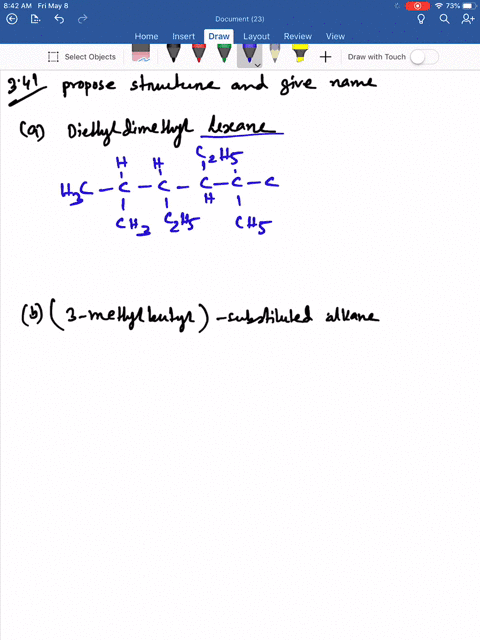 8:42 AM Fri May 8
73%
Document (23)
Home Insert Draw Layout Review View
Select Objects
Draw with Touch
3.41 propose structure and give name
(a) Diethyldimethyl hexane
H H C2H5
H3C - C - C - C - C - C
H
CH3 C2H5 CH5
(b) (3-methylbutyl) - substituted alkane